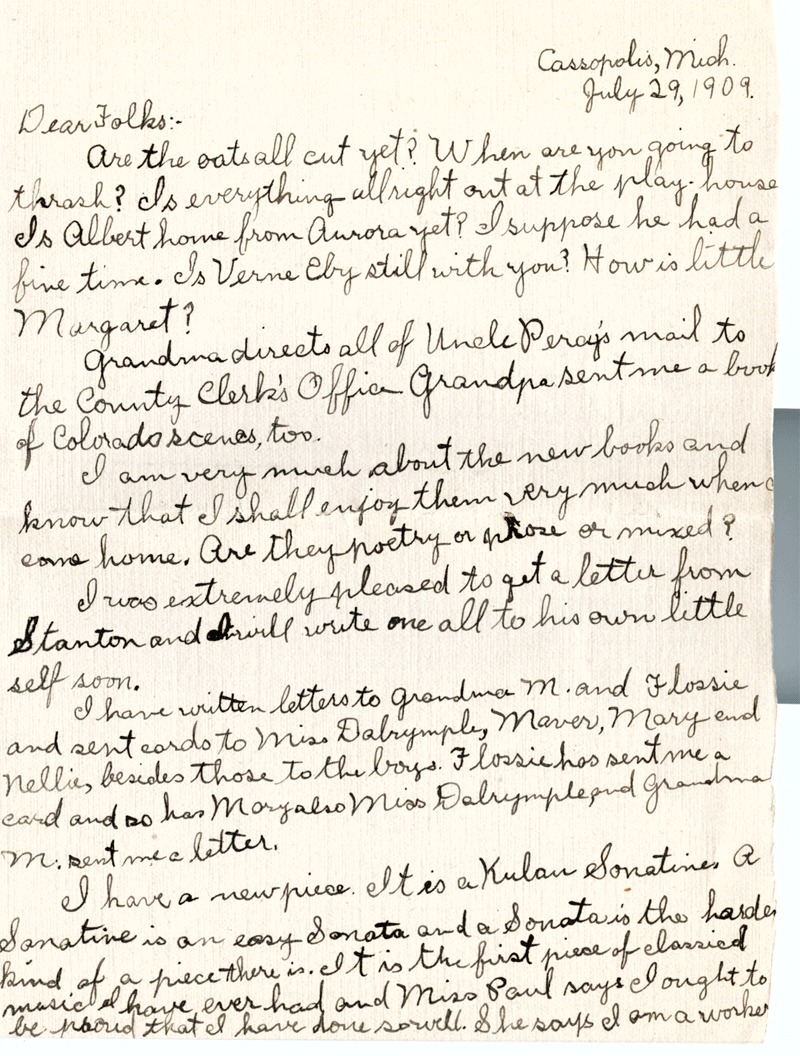 Cassopolis, Mich.
July 29, 1909.
Dear Folks:-
Are the oats all cut yet? When are you going to
thrash? Is everything allright out at the play-house
Is Albert home from Aurora yet? I suppose he had a
fine time. Is Verne Eby still with you? How is little
Margaret?
Grandma directs all of Uncle Percy's mail to
the County Clerk's Office Grandpa sent me a book
of Colorado scenes, too.
I am very much about the new books and
know that I shall enjoy them very much when
come home. Are they poetry or prose or mixed?
I was extremely pleased to get a letter from
Stanton and I will write one all to his own little
self soon.
I have written letters to Grandma M. and Flossie
and sent cards to Miss Dalrymple, Maver, Mary and
Nellie, besides those to the boys. Flossie has sent me a
card and so has Mary also Miss Dalrymple, and Grandma
M. sent me a letter.
I have a new piece. It is a Kulau Sonatine. A
Sonatine is an easy Sonata and a Sonata is the harde
kind of a piece there is. It is the first piece of classical
music I have ever had and Miss Paul says I ought to
be proud that I have done so well. She says I am a worker